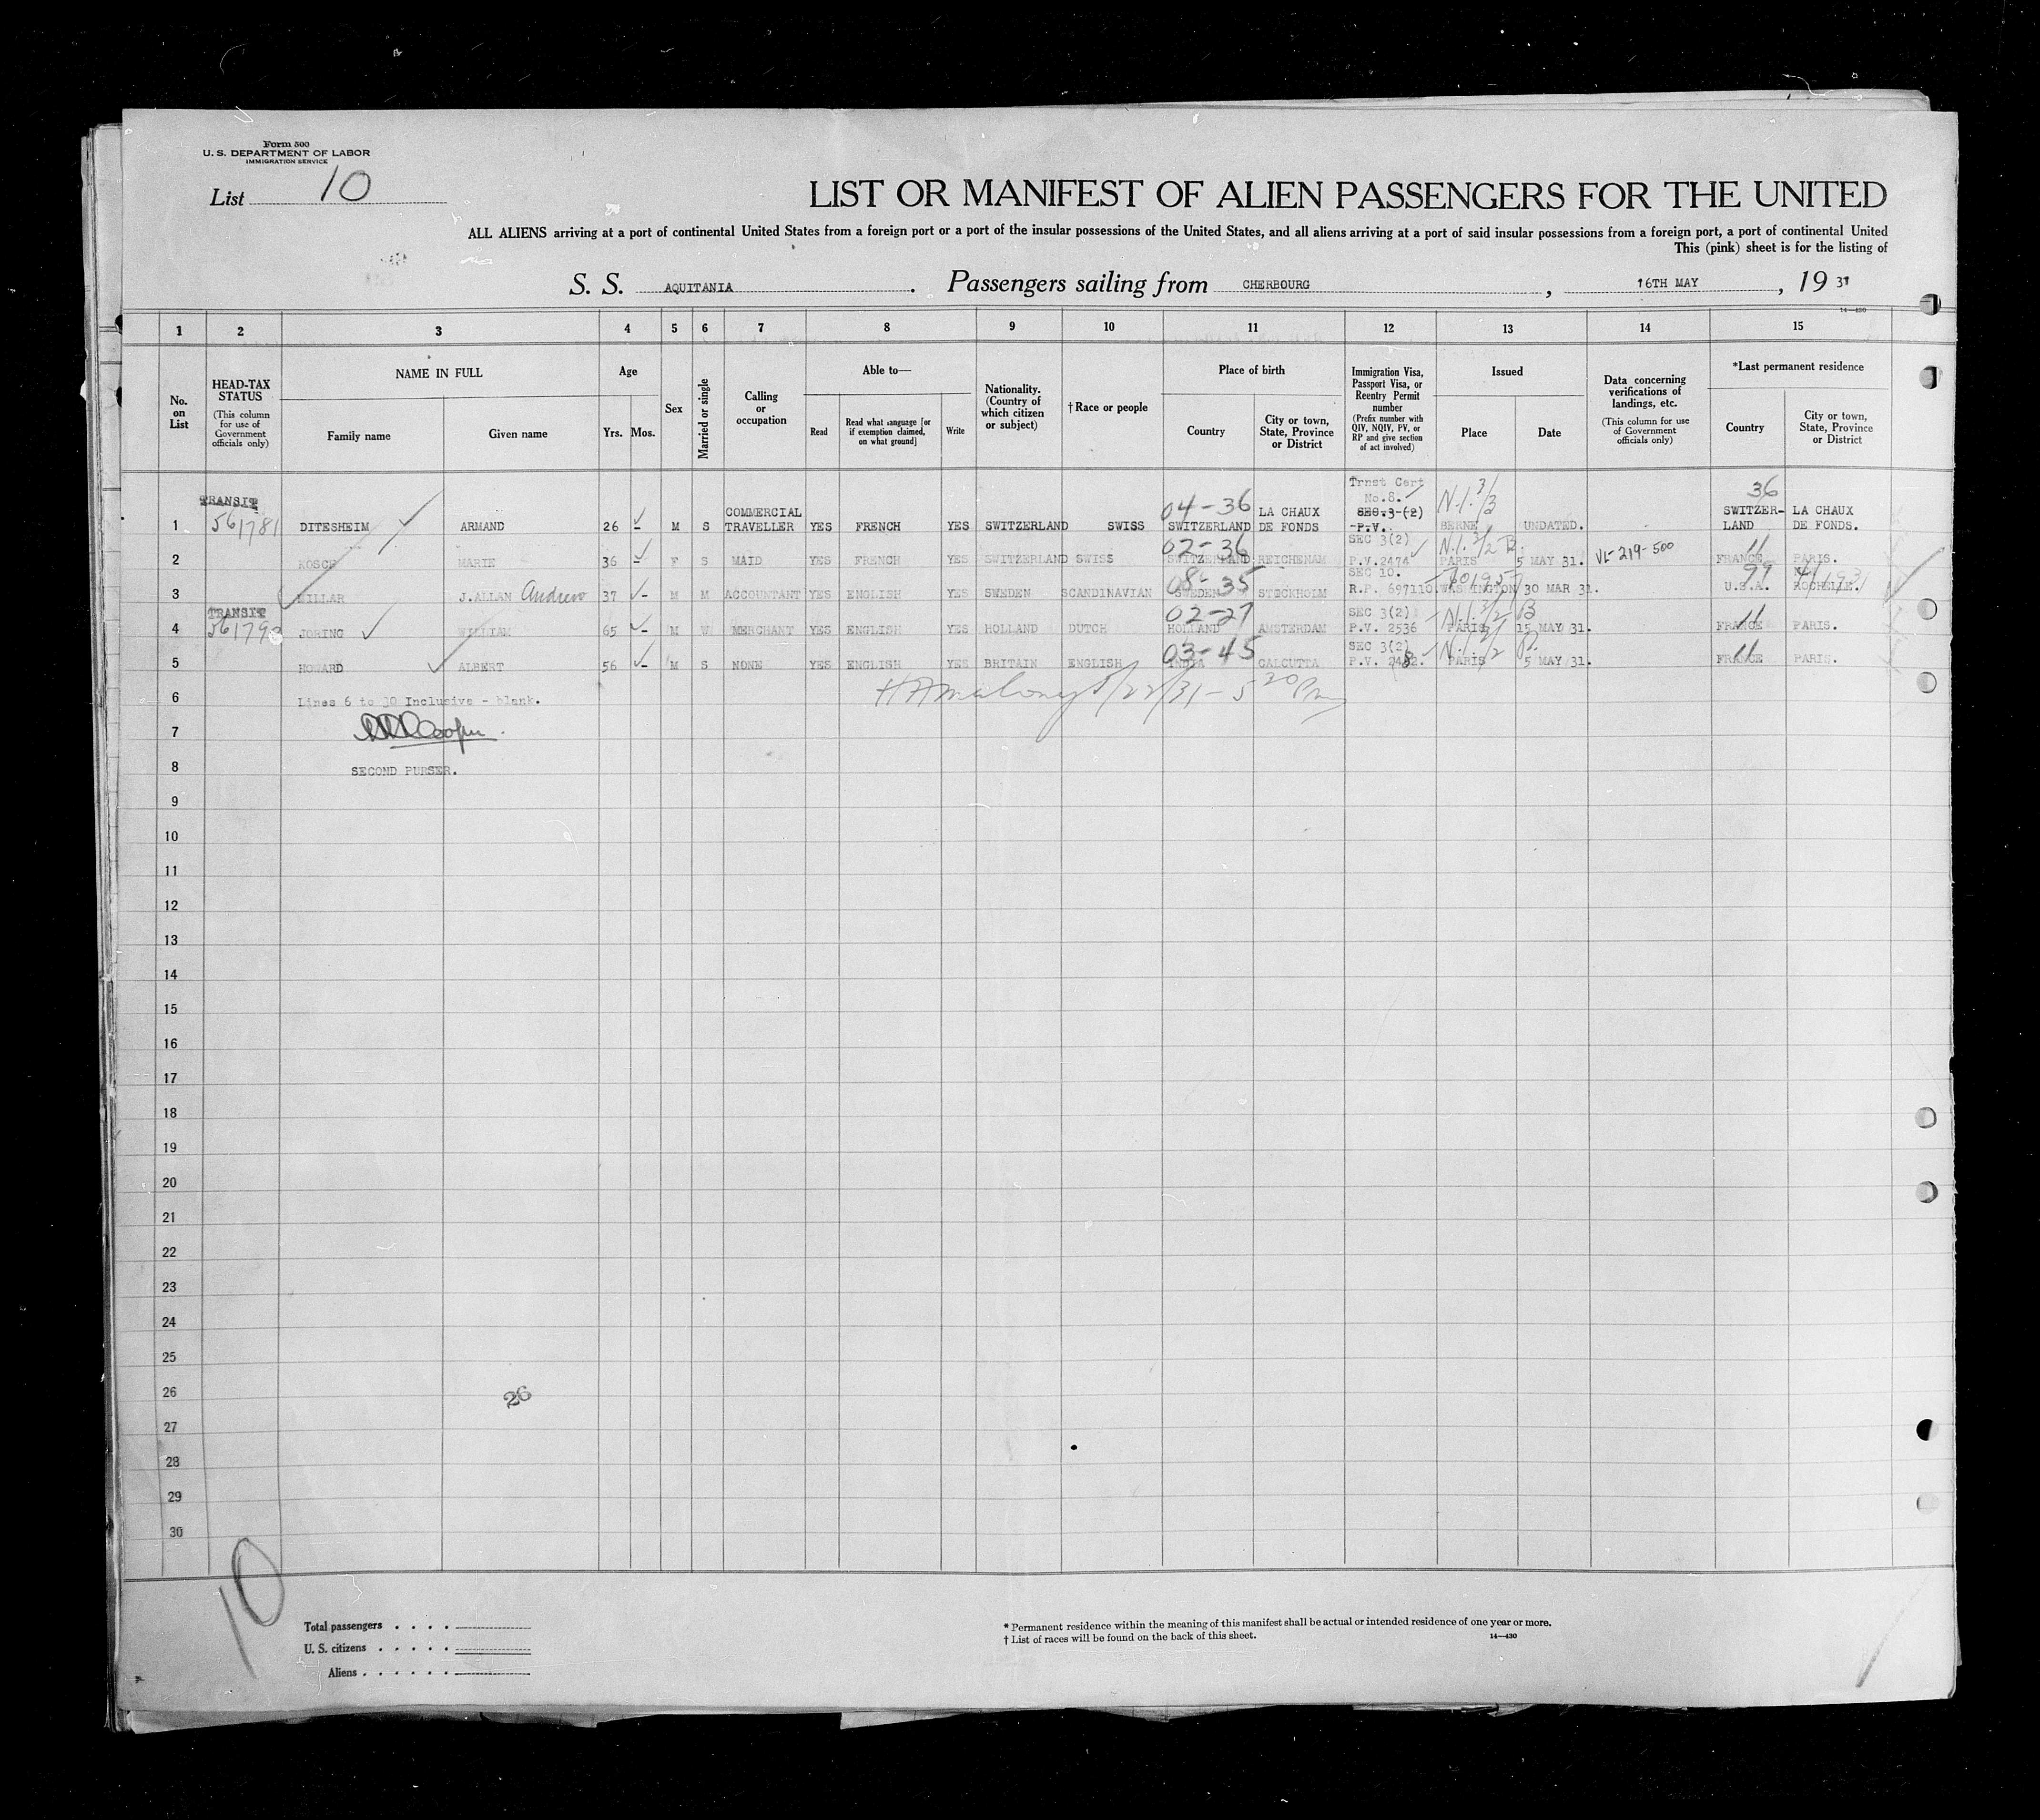 Form 500
U. S. DEPARTMENT OF LABOR
IMMIGRATION SERVICE
List 10
LIST OR MANIFEST OF ALIEN PASSENGERS FOR THE UNITED
ALL ALIENS arriving at a port of continental United States from a foreign port or a port of the insular possessions of the United States, and all aliens arriving at a port of said insular possessions from a foreign port, a port of continental United
This (pink) sheet is for the listing of
S. S. AQUITANIA. Passengers sailing from CHERBOURG, 16TH MAY, 19 31
14—430
1 2 3 4 5 6 7 8 9 10 11 12 13 14 15
No. on List
HEAD-TAX STATUS (This column for use of Government officials only)
NAME IN FULL
Family name Given name
Age
Yrs. Mos.
Sex
Married or single
Calling or occupation
Able to—
Read Read what language [or if exemption claimed, on what ground] Write
Nationality. (Country of which citizen or subject)
†Race or people
Place of birth
Country City or town, State, Province or District
Immigration Visa, Passport Visa, or Reentry Permit number (Prefix number with QIV, NQIV, PV, or RP and give section of act involved)
Issued
Place Date
Data concerning verifications of landings, etc. (This column for use of Government officials only)
*Last permanent residence
Country City or town, State, Province or District
1 TRANSIT 561781 DITESHEIM ARMAND 26 - M S COMMERCIAL TRAVELLER YES FRENCH YES SWITZERLAND SWISS 04-36 SWITZERLAND LA CHAUX DE FONDS Trnst Cert No.8. SEC.3-(2) P.V. N.I. 3/3 BERNE UNDATED. 36 SWITZER-LAND LA CHAUX DE FONDS.
2 KOSCH MARIE 36 - F S MAID YES FRENCH YES SWITZERLAND SWISS 02-36 SWITZERLAND REICHENAM SEC 3(2) P.V.2474 N.I. 3/2 PARIS 5 MAY 31. VL-219-500 11 FRANCE PARIS.
3 MILLAR J.ALLAN Andrew 37 - M M ACCOUNTANT YES ENGLISH YES SWEDEN SCANDINAVIAN 08-35 SWEDEN STOCKHOLM SEC 10. R.P. 697110. WASHINGTON 30 MAR 31. 99 U.S.A. ROCHELLE.
4 TRANSIT JORING WILLIAM 65 - M W MERCHANT YES ENGLISH YES HOLLAND DUTCH 02-27 HOLLAND AMSTERDAM SEC 3(2) P.V. 2536 N.I. 3/2 B PARIS 15 MAY 31. 11 FRANCE PARIS.
5 HOWARD ALBERT 56 - M S NONE YES ENGLISH YES BRITAIN ENGLISH 03-45 INDIA CALCUTTA SEC 3(2) P.V. 2482. N.I. 3/2 PARIS 5 MAY 31. 11 FRANCE PARIS.
6 Lines 6 to 30 Inclusive - blank. 5/22/31 - 5 20 Pm
7
8 SECOND PURSER.
9
10
11
12
13
14
15
16
17
18
19
20
21
22
23
24
25
26 26
27
28
29
30
10
Total passengers . . . .
U. S. citizens . . . . .
Aliens . . . . . .
* Permanent residence within the meaning of this manifest shall be actual or intended residence of one year or more.
† List of races will be found on the back of this sheet.
14—430